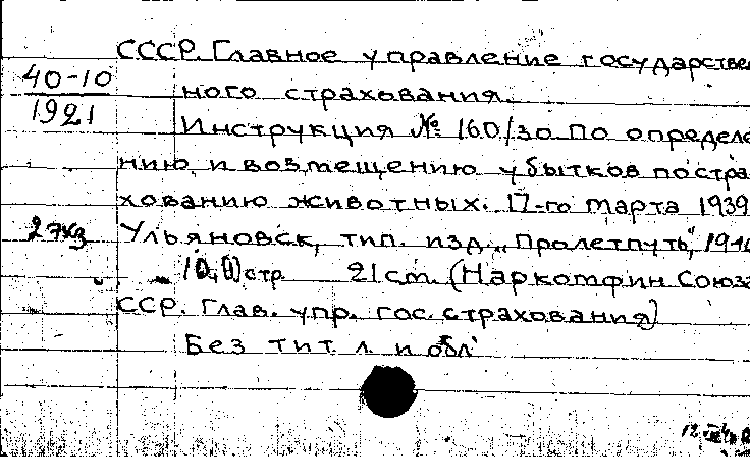 СССР. Главное управление государствен
40-10
ного страхования.
1921
Инструкция № 160/30 по определе
нию и возмещению убытков по стра
хованию животных. 17-го марта 1939
27кз
Ульяновск, тип. изд. „Пролетпуть",
стр 21 cm. (Наркомфин Союза
ССР. Глав. упр. гос. страхования)
Без тит. л. и обл.